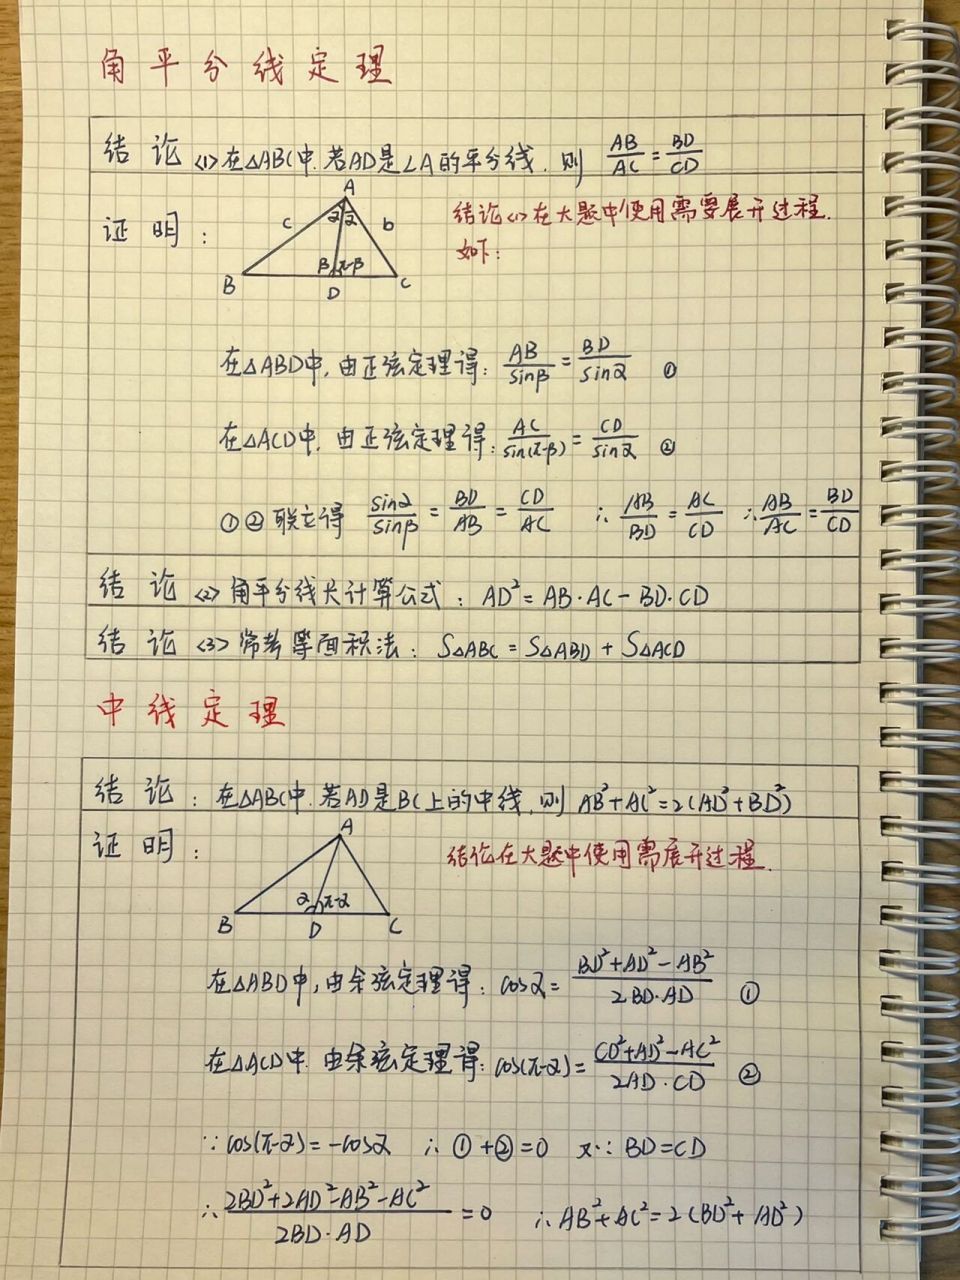 角平分线定理
结论<1>在△ABC中.若AD是∠A的平分线.则 AB/AC = BD/CD
证明:
A
c
α α
b
β π-β
B
D
C
结论<1>在大题中使用需要展开过程.
如下:
在△ABD中,由正弦定理得: AB/sinβ = BD/sinα ①
在△ACD中.由正弦定理得: AC/sin(π-β) = CD/sinα ②
①②联立得 sinα/sinβ = BD/AB = CD/AC ∴ AB/BD = AC/CD ∴ AB/AC = BD/CD
结论<2>角平分线长计算公式: AD²=AB·AC-BD·CD
结论<3>常考等面积法: S△ABC = S△ABD + S△ACD
中线定理
结论:在△ABC中.若AD是BC上的中线,则 AB²+AC²=2(AD²+BD²)
证明:
A
α π-α
B
D
C
结论在大题中使用需展开过程.
在△ABD中,由余弦定理得: cosα= BD²+AD²-AB²/2BD·AD ①
在△ACD中.由余弦定理得: cos(π-α)= CD²+AD²-AC²/2AD·CD ②
∵cos(π-α)=-cosα ∴①+②=0 又∵BD=CD
∴ 2BD²+2AD²-AB²-AC²/2BD·AD =0 ∴AB²+AC²=2(BD²+AD²)